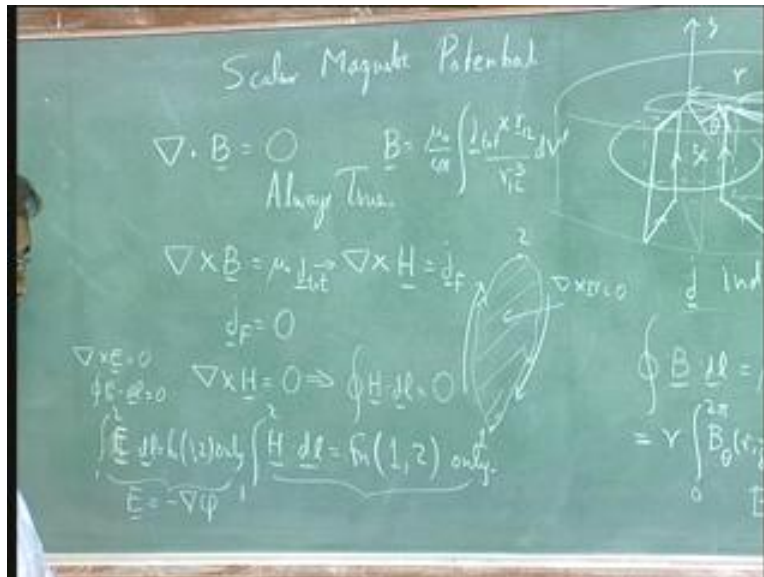 Scalar Magnetic Potential
∇ · B = 0
B = μ₀/4π ∫ j_tot × r₁₂ / r₁₂³ dV'
Always True
∇ × B = μ₀ j_tot → ∇ × H = j_F
j_F = 0
∇ × E = 0
∮ E · dl = 0
∇ × H = 0 ⇒ ∮ H · dl = 0
∫₁² E · dl = fn(1,2) only
∫₁² H · dl = fn(1,2) only.
E = -∇φ
2
1
r
θ
j ind
∮ B · dl =
= r ∫₀^{2π} B_θ(r,